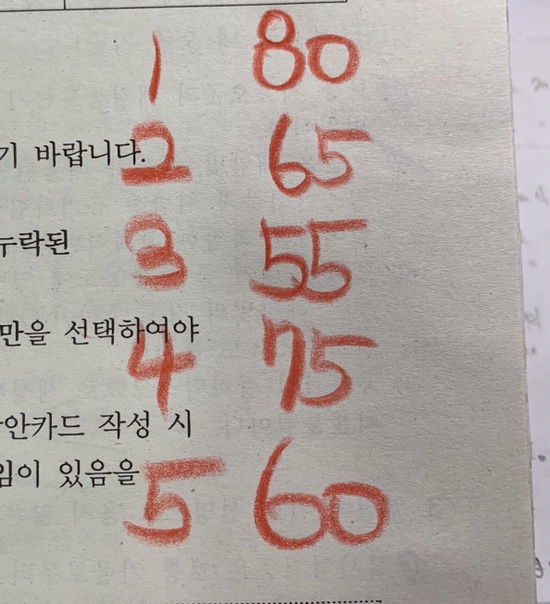 1 80
기 바랍니다.
2 65
누락된
3 55
만을 선택하여야
4 75
안카드 작성 시
임이 있음을
5 60